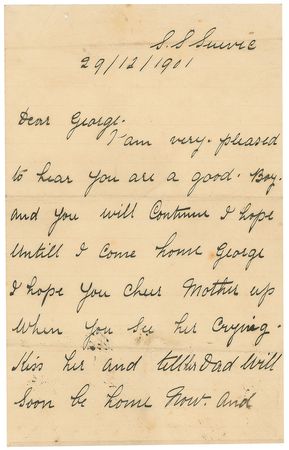 S.S Suevic
29/12/1901
Dear George.
I am very. pleased
to hear you are a good. Boy.
and you will Continue I hope
Untill I come home George
I hope you cheer Mother up
When you see her Crying.
Kiss her and tell her Dad Will
Soon be home Now. And